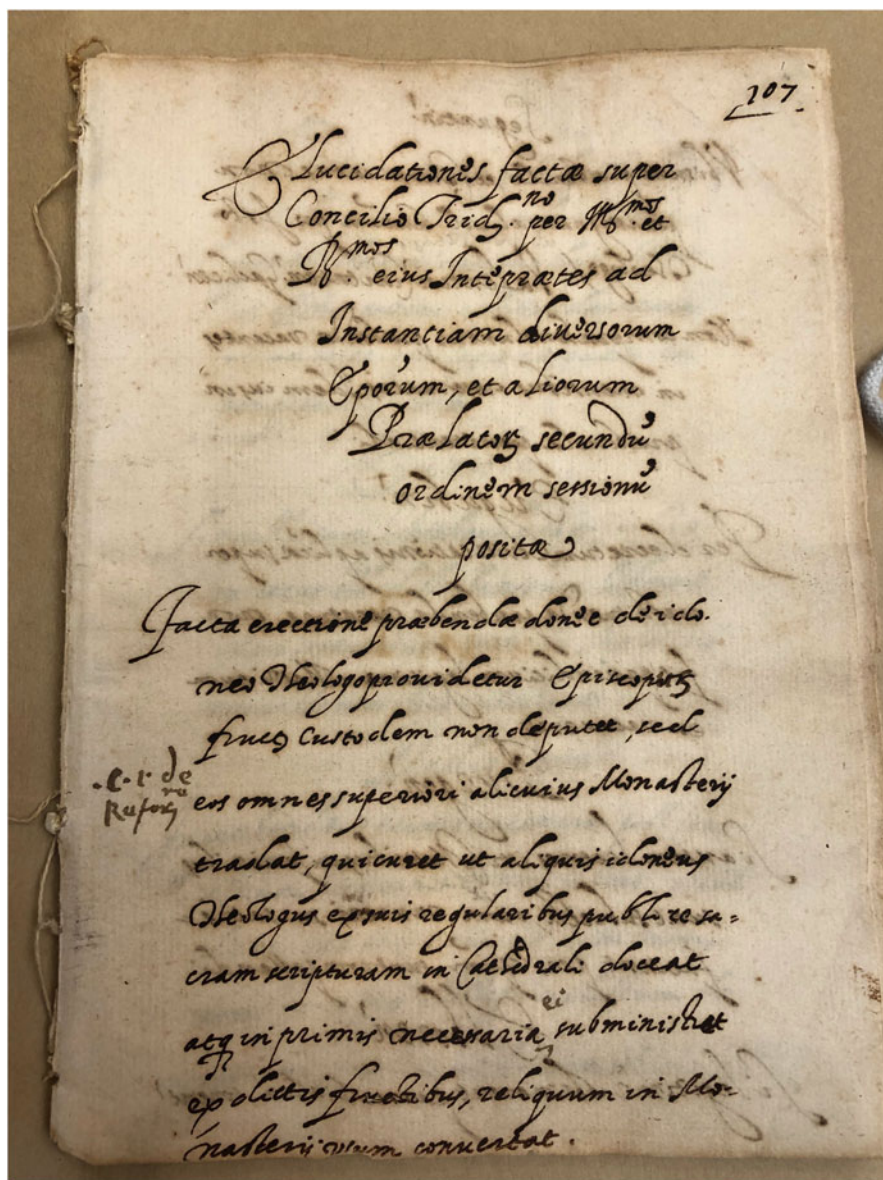 107
Elucidationes factæ super
Concilio Trid.no per Ill.mos et
R.mos eius Inteprætes ad
Instantiam diversorum
Eporum, et aliorum
Prælatorꝝ secundũ
ordinem sessionũ
positæ
Facta erectione præbendæ donec de ido.
neo Theologo providetur Episcopus
Custodem non deputet, sed
.C.1. de
Reforꝝ
eos omnes superiori alicuius Monasterij
tradat, qui curet ut aliquis idoneus
Theologus ex suis regularibus publice sa=
cram scripturam in Cathedrali doceat
ei
atq in primis necessaria subministret
ex dictis fructibus, reliquum in Mo-
nasterij usum convertat.